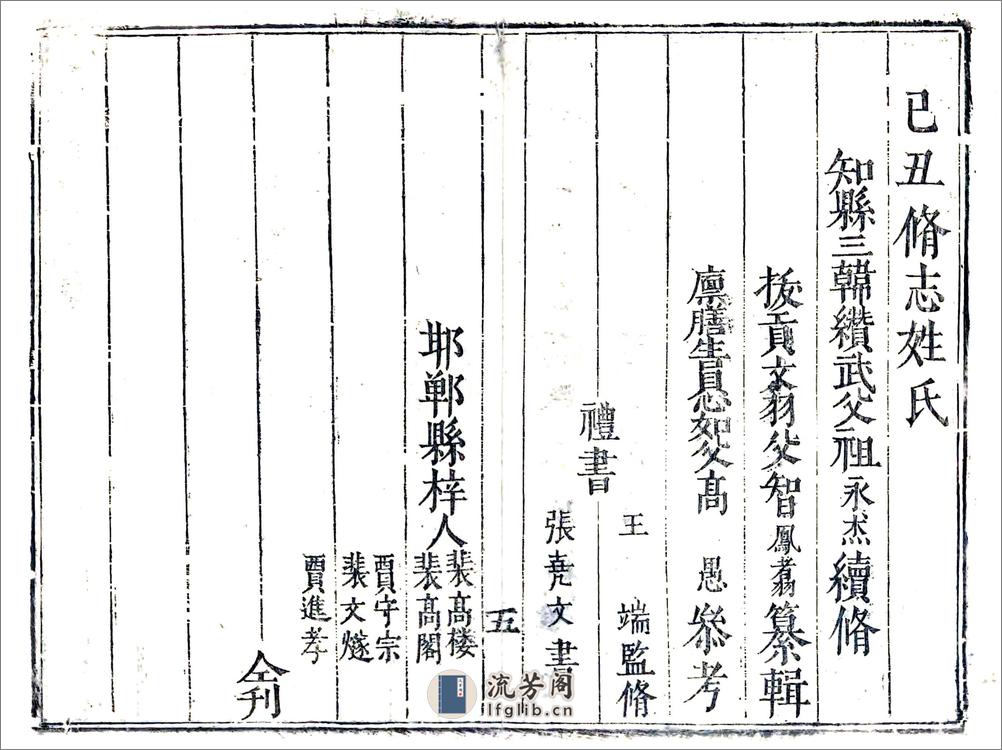 己丑脩志姓氏
知縣三韓纘武父祖永杰續脩
拔貢文翁父智鳳翥纂輯
廪膳生員忍如父髙 愚叅考
禮書
王 端監脩
張尭文書
五
邯鄲縣梓人
裴髙楼
裴髙閣
賈守宗
裴文燧
賈進孝
仝刋
流芳阁
lfglib.cn